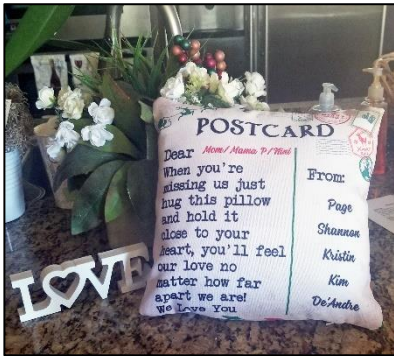 POSTCARD
Dear Mom/Mama P/Mimi
When you're
missing us just
hug this pillow
and hold it
close to your
heart, you'll feel
our love no
matter how far
apart we are!
We Love You
From:
Page
Shannon
Kristin
Kim
De'Andre
LOVE